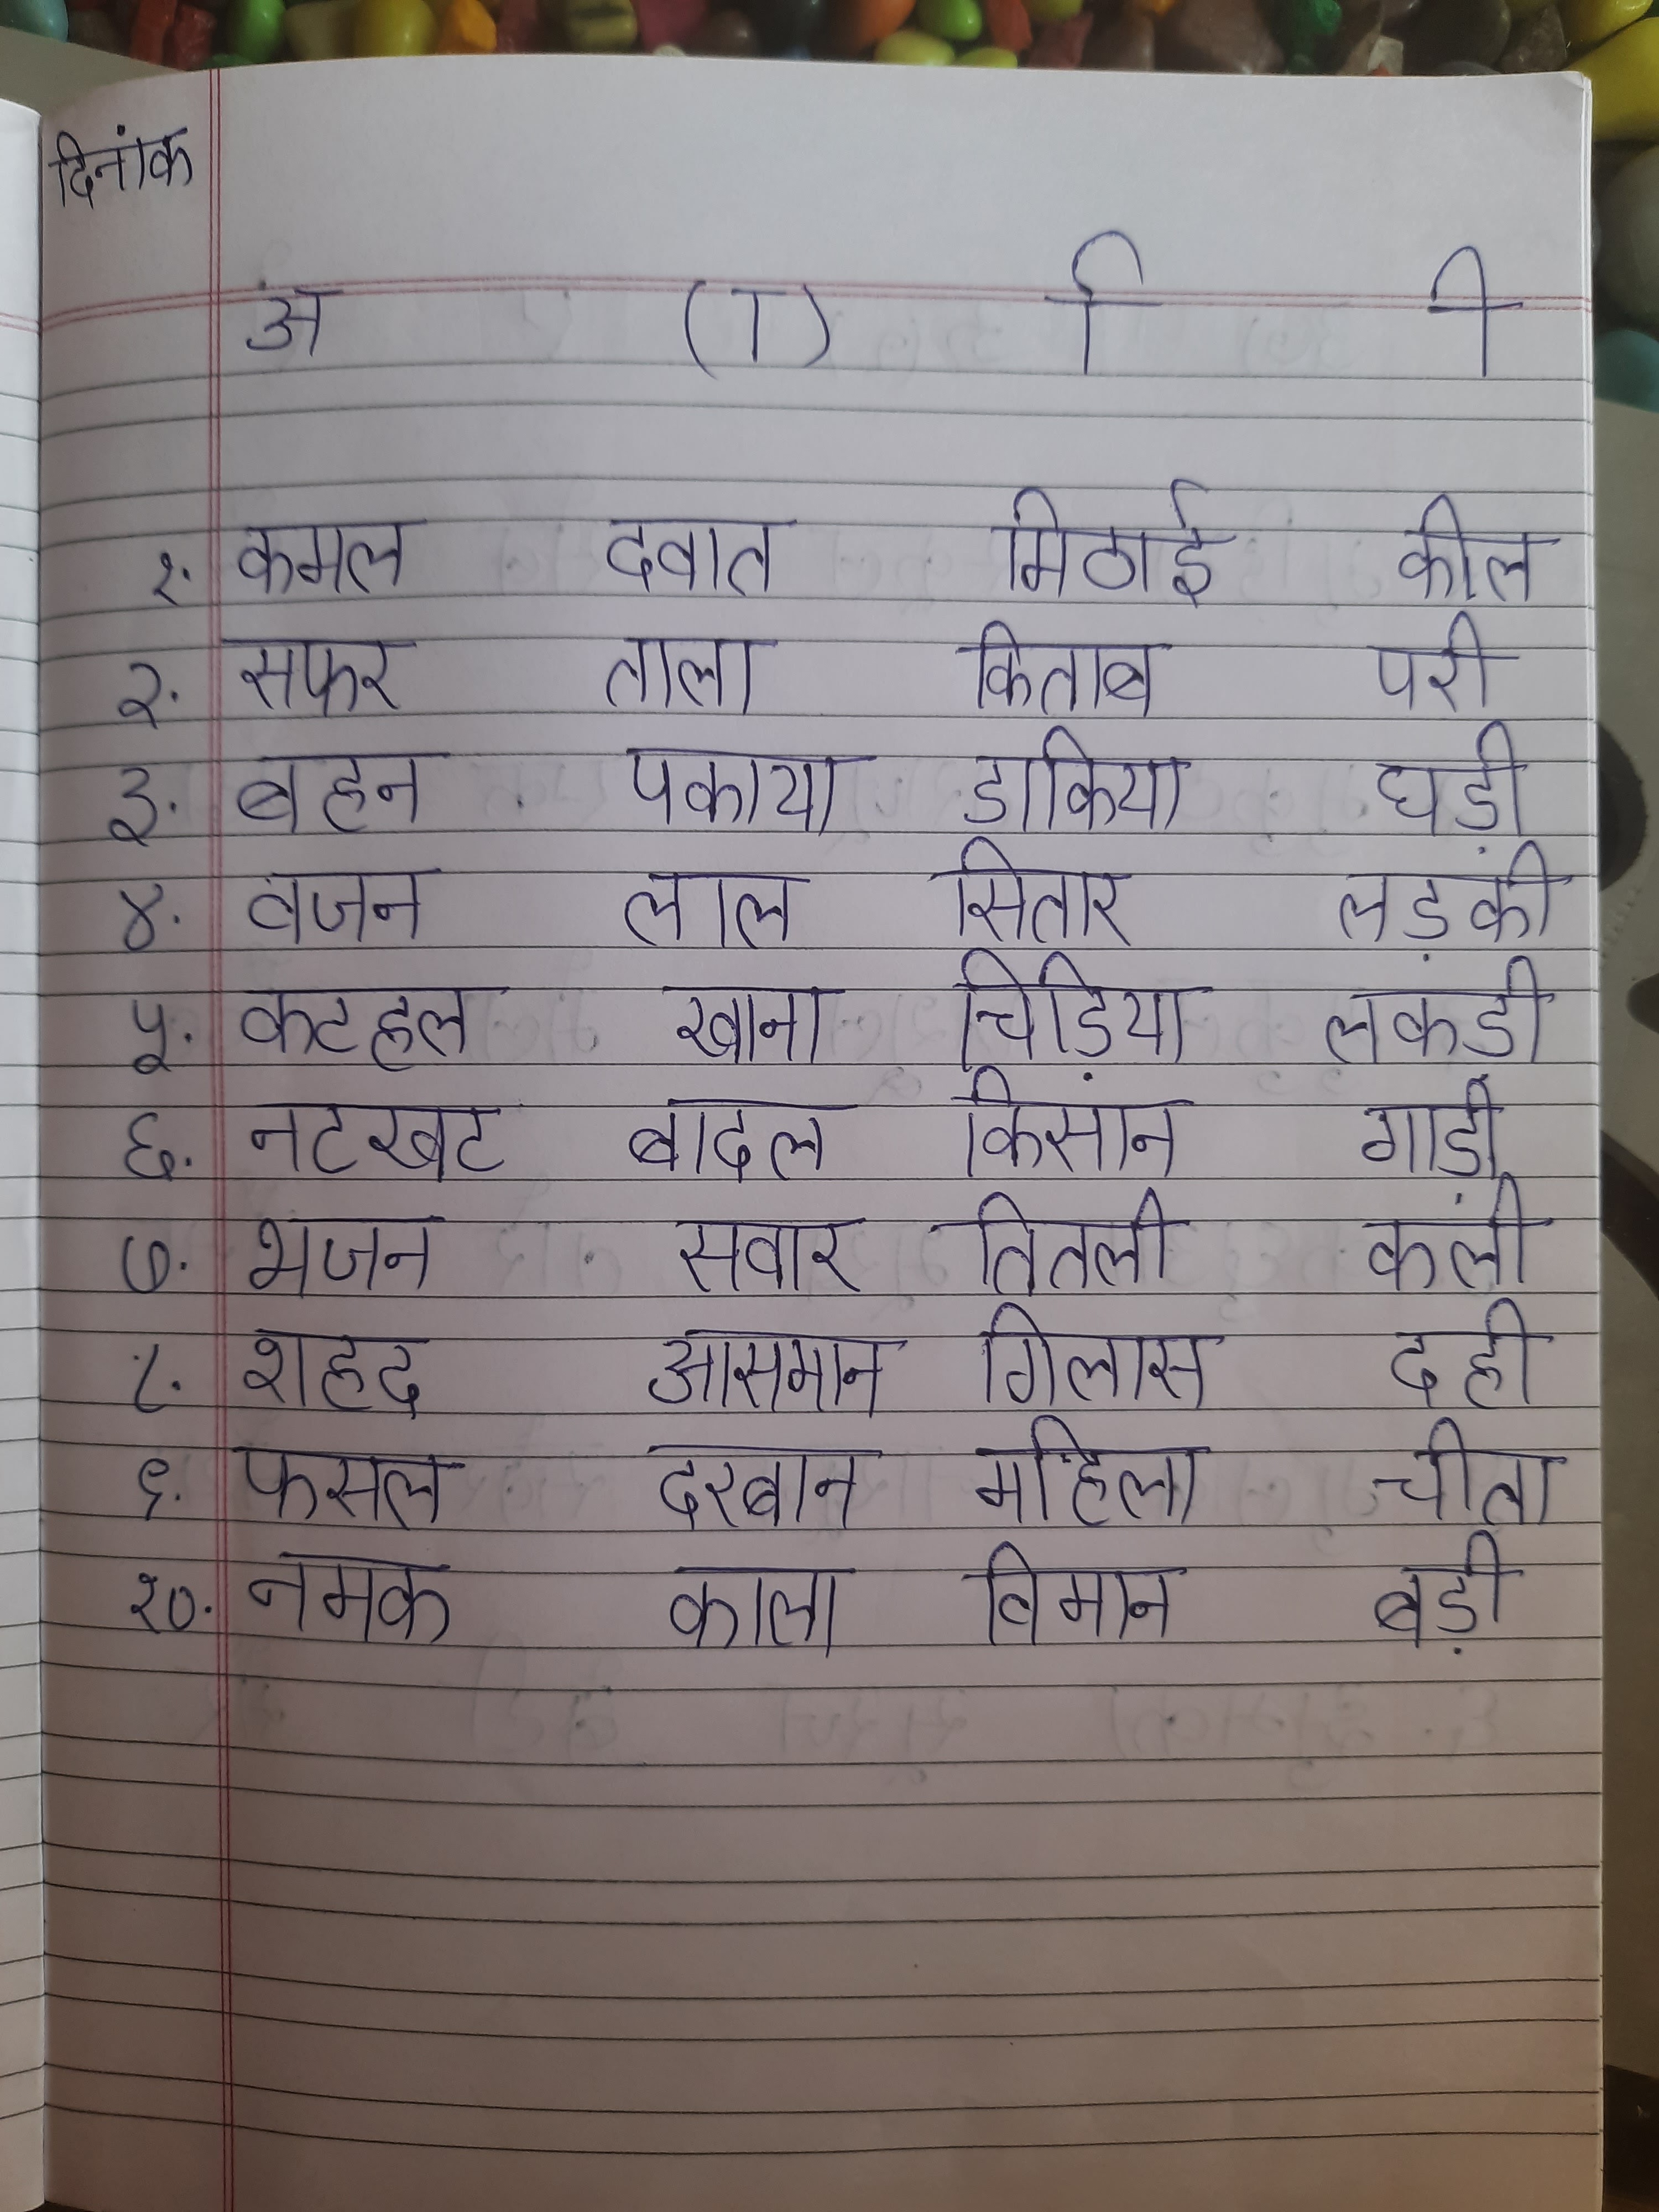 दिनांक
अ (ा) ि ी
१. कमल दवात मिठाई कील
२. सफर ताला किताब परी
३. बहन पकाया डाकिया घड़ी
४. वजन लाल सितार लड़की
५. कटहल खाना चिड़िया लकडी
६. नटखट बादल किसान गाड़ी
७. भजन सवार तितली कली
८. शहद आसमान गिलास दही
९. फसल दरबान महिला चीता
१०. नमक काला विमान बड़ी